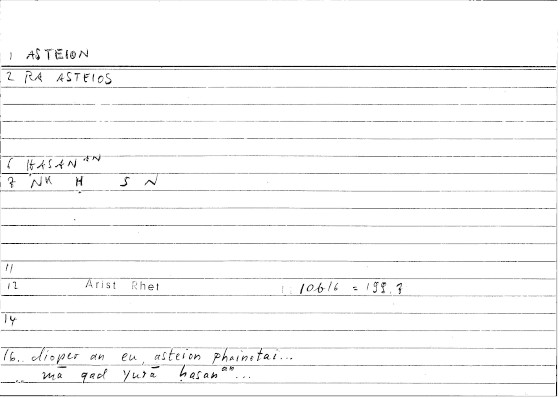 1 ASTEION
2 RA ASTEIOS
6 ḤASAN AN
7 NK Ḥ S N
11
12 Arist Rhet 1. 10b16 = 199.3
14
16. dioper an eu, asteion phainetai...
.. mā qad yurā ḥasan an...